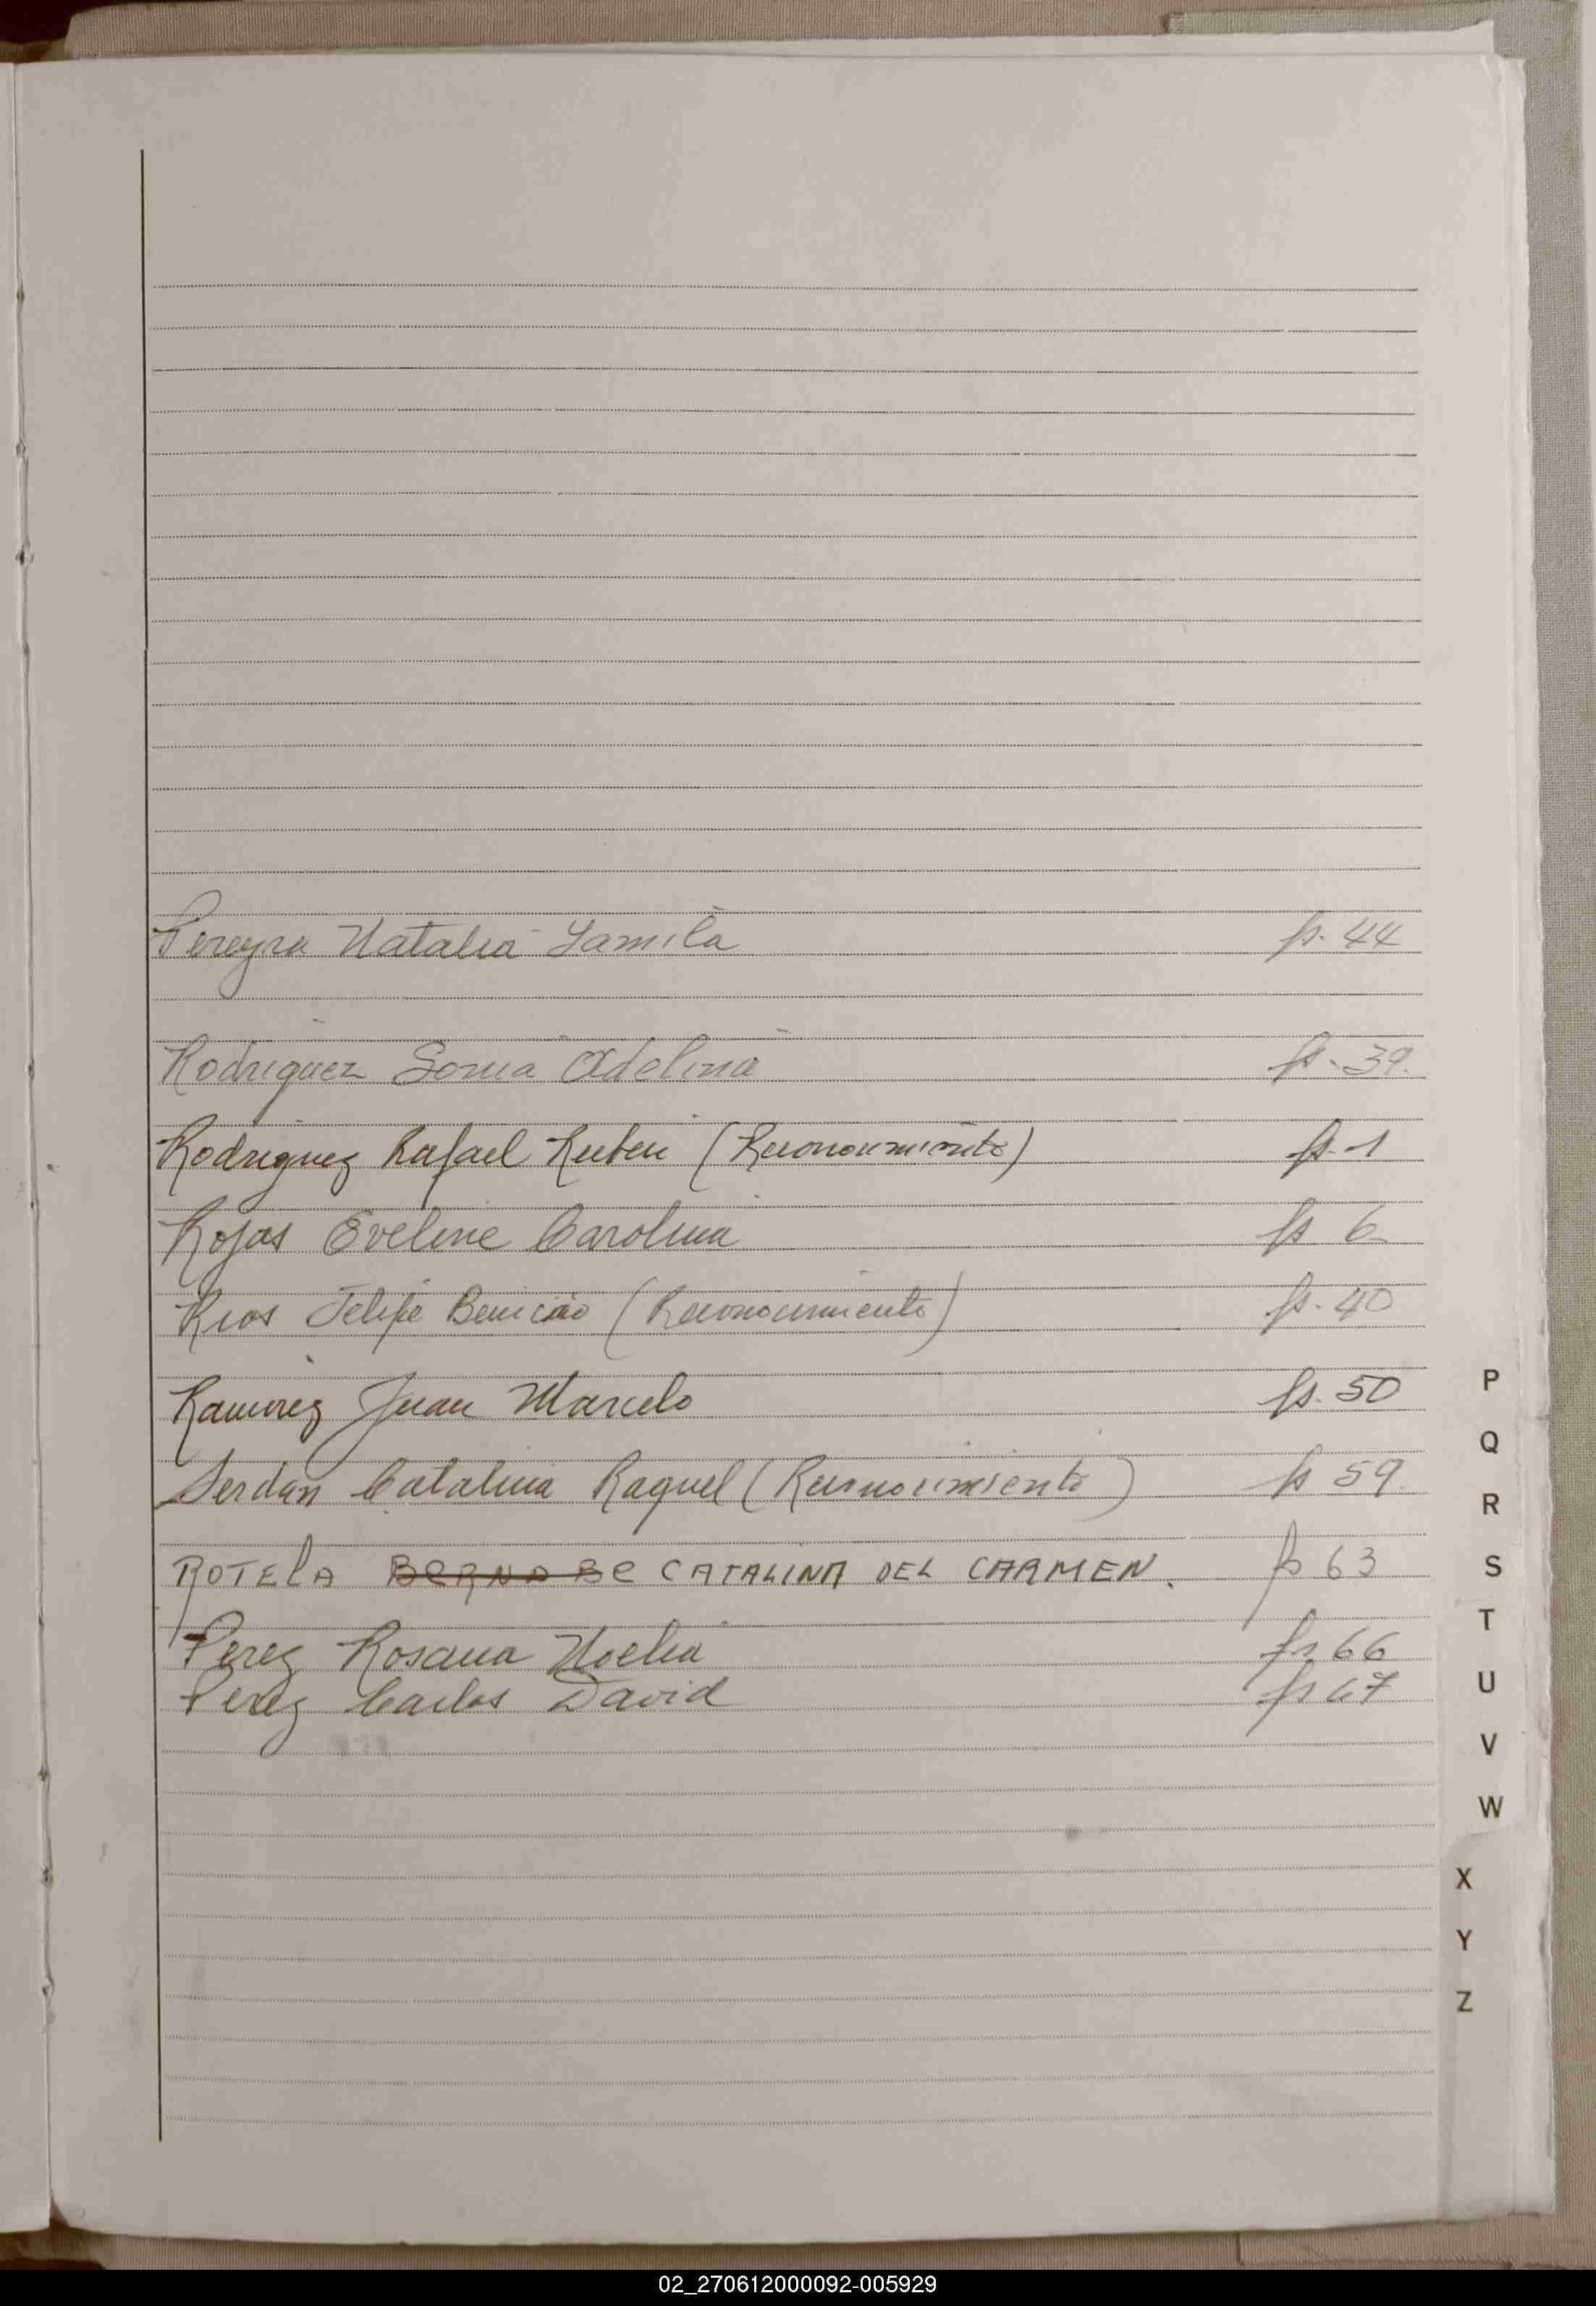 Pereyra Natalia Yamila fs. 44
Rodriguez Sonia Adelina fs. 39.
Rodriguez Rafael Ruben (Reconocimiento) fs. 1
Rojas Eveline Carolina fs 6
Rios Felipe Benicio (Reconocimiento) fs. 40
Ramirez Juan Marcelo fs. 50
Serdan Catalina Raquel (Reconocimiento) fs 59.
ROTELA BERNABE CATALINA DEL CARMEN. fs 63
Perez Rosana Noelia fs 66
Perez Carlos David fs 67
P
Q
R
S
T
U
V
W
X
Y
Z
02_270612000092-005929